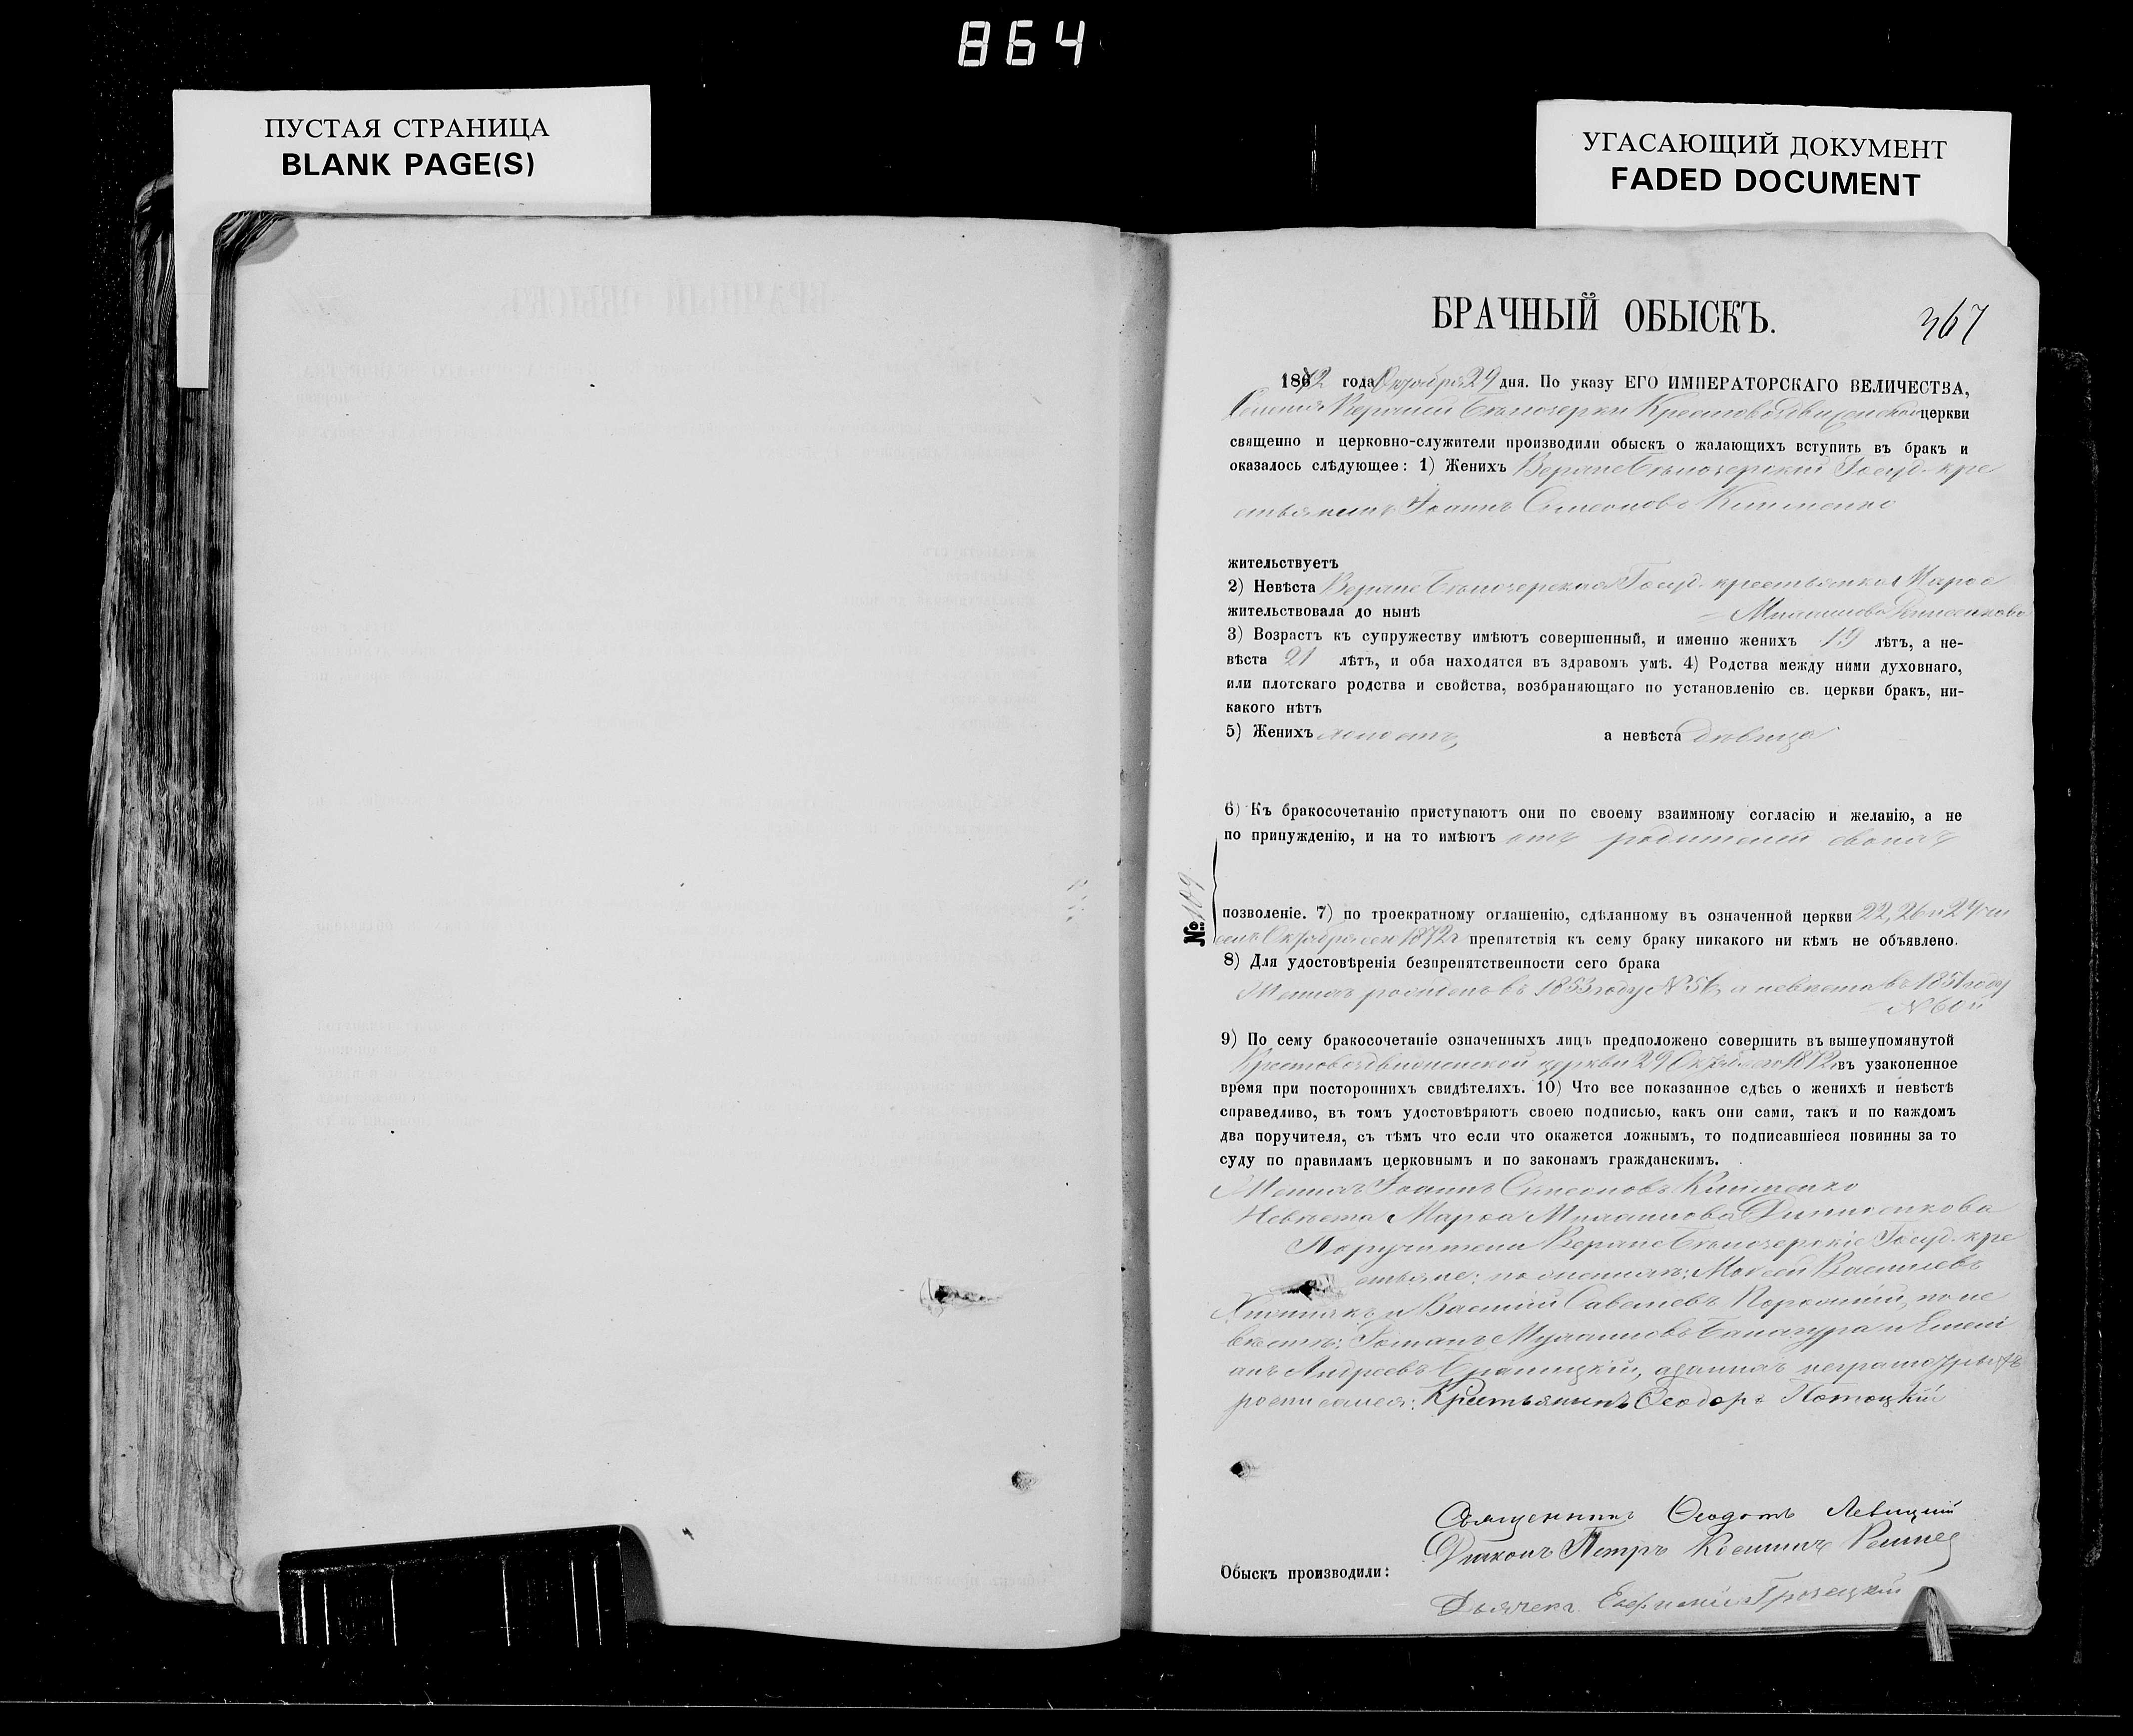 864
ПУСТАЯ СТРАНИЦА
BLANK PAGE(S)
УГАСАЮЩИЙ ДОКУМЕНТ
FADED DOCUMENT
БРАЧНЫЙ ОБЫСКЪ.
367
1872 года Октября 29 дня. По указу ЕГО ИМПЕРАТОРСКАГО ВЕЛИЧЕСТВА,
Селенія Верхней Бѣлозерки Крестовоздвиженской церкви
священно и церковно-служители производили обыскъ о жалающихъ вступить въ бракъ и
оказалось слѣдующее: 1) Женихъ Верхне Бѣлозерскій Госуд. кре
стьянинъ Іоаннъ Симеоновъ
жительствуетъ
2) Невѣста Верхне Бѣлозерская Госуд. крестьянка Марѳа
жительствовала до нынѣ
3) Возрастъ къ супружеству имѣютъ совершенный, и именно женихъ 19 лѣтъ, а не-
вѣста 21 лѣтъ, и оба находятся въ здравомъ умѣ. 4) Родства между ними духовнаго,
или плотскаго родства и свойства, возбраняющаго по установленію св. церкви бракъ, ни-
какого нѣтъ
5) Женихъ холостъ, а невѣста дѣвица
6) Къ бракосочетанію приступаютъ они по своему взаимному согласію и желанію, а не
по принужденію, и на то имѣютъ отъ родителей своихъ
№ 109
позволеніе. 7) по троекратному оглашенію, сдѣланному въ означенной церкви 22, 26 и
Октября 1872 г препятствія къ сему браку никакого ни кѣмъ не объявлено.
8) Для удостовѣренія безпрепятственности сего брака
Женихъ рожденъ въ 1853 году № 56, а невѣста въ 1851 году
№ 60й
9) По сему бракосочетаніе означенныхъ лицъ предположено совершить въ вышеупомянутой
Крестовоздвиженской церкви 29 Октября 1872 въ узаконенное
время при постороннихъ свидѣтеляхъ. 10) Что все показанное сдѣсь о женихѣ и невѣстѣ
справедливо, въ томъ удостовѣряютъ своею подписью, какъ они сами, такъ и по каждомъ
два поручителя, съ тѣмъ что если что окажется ложнымъ, то подписавшіеся повинны за то
суду по правиламъ церковнымъ и по законамъ гражданскимъ.
Женихъ Іоаннъ Симеоновъ
Невѣста Марѳа
Поручители Верхне Бѣлозерскіе Госуд. кре
стьяне: по женихѣ: Моисей Василіевъ
и Василій Савельевъ по не
вѣстѣ: Романъ и Емелі
анъ Андреевъ
росписался: Крестьянинъ Ѳеодоръ Потоцкій
Священникъ Ѳеодотъ Левицкій
Діаконъ Петръ
Обыскъ производили:
Дьячекъ Евфимій